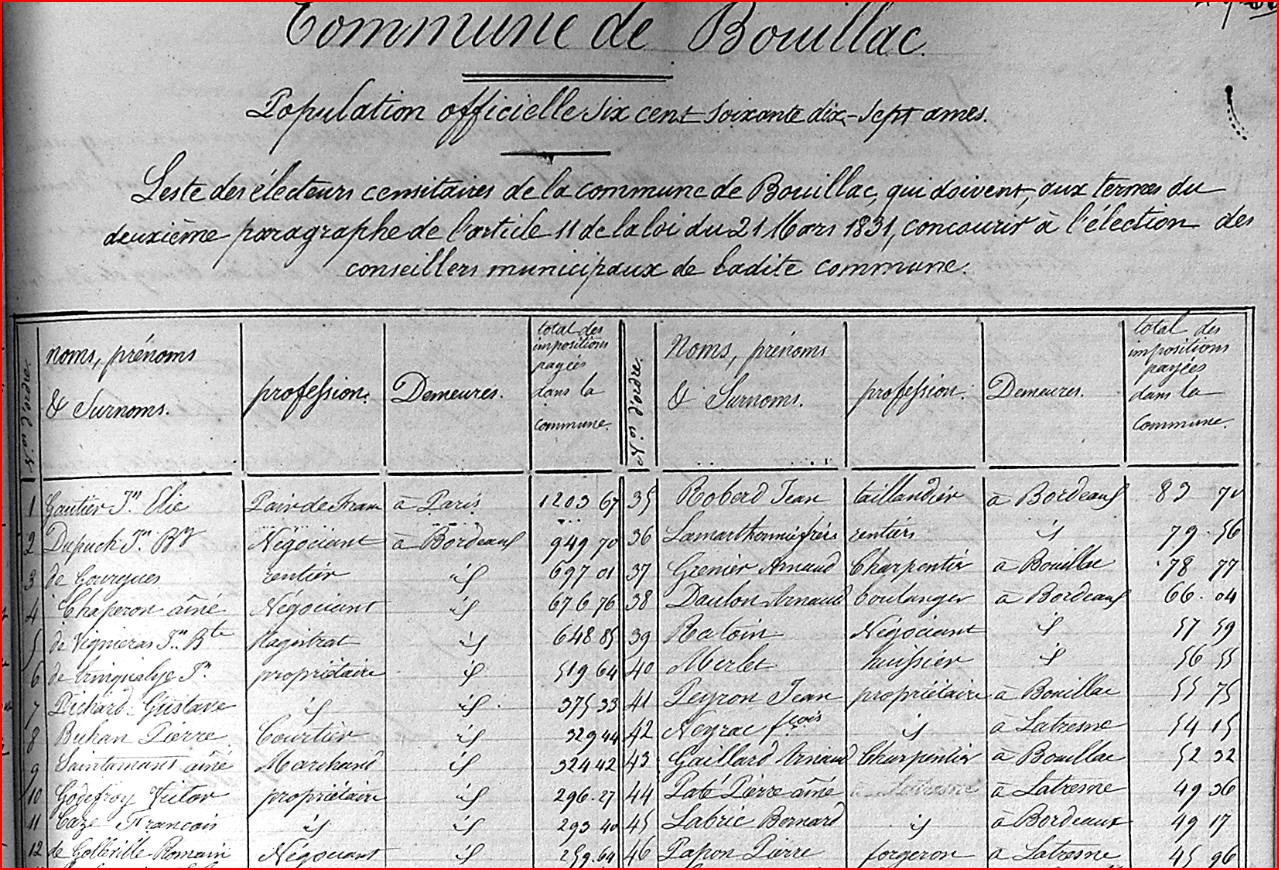 Commune de Bouillac.
Population officielle six cent soixante dix-sept ames.
Liste des électeurs censitaires de la commune de Bouillac, qui doivent, aux termes du
deuxième paragraphe de l'article 11 de la loi du 21 Mars 1831, concourir à l'élection des
conseillers municipaux de ladite commune.
Nos d'ordre. noms, prénoms & Surnoms. profession. Demeures. total des impositions payées dans la commune. Nos d'ordre. Noms, prénoms & Surnoms. profession. Demeures. total des impositions payées dans la commune.
1 Gautier Jn Elie Pair de Fran à Paris 1203 67 35 Roberd Jean taillandier à Bordeaux 83
2 Dupuch Jn à Bordeaux 949 70 36 Lamarthonnie frères rentiers id 79 56
Négociant
3 de Gourgues rentier id 697 01 37 Grenier Arnaud Charpentier à Bouillac 78 77
4 Chaperon aîné Négociant id 676 76 38 Daulon Arnaud boulanger à Bordeaux 66 04
5 de Vignieras Jn Bte Magistrat id 648 85 39 Ratoin Négociant id 57 59
6 de Jn propriétaire id 519 64 40 Merlet huissier id 56 55
7 Pichard Gustave id id 375 33 41 Peyron Jean propriétaire à Bouillac 55 75
8 Buhan Pierre Courtier id 329 44 42 Neyrac fçois id à Latresne 54 15
9 Saintamans aîné Marchand id 324 42 43 Gaillard Arnaud Charpentier à Bouillac 52 32
10 Godefroy Victor propriétaire id 296 27 44 Paté Pierre aîné à Latresne 49 36
11 Caze Francois id id 293 40 45 Labrie Bernard id à Bordeaux 49 17
12 de Golleville Romain Négociant id 259 64 46 Papon Pierre forgeron à Latresne 45 96